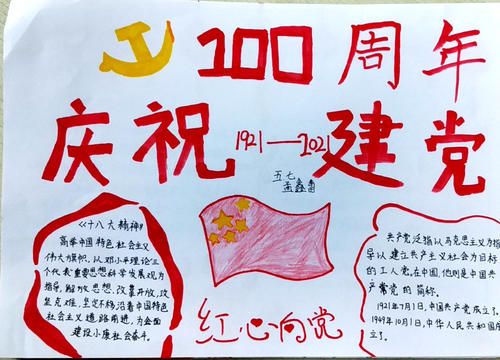 100周年
庆祝 1921—2021 建党
五七
孟鑫
《十八大精神》
高举中国特色社会主义
伟大旗帜,以邓小平理论三
个代表重要思想科学发展观为
指导,解放思想,改革开放,攻
坚克难,坚定不移沿着中国特色
社会主义道路前进,为全面
建设小康社会奋斗。
共产党泛指以马克思主义为指
导以建立共产主义社会为目标
的工人党。在中国,他则是中国共
产党的简称。
1921年7月1日,中国共产党成立了。
1949年10月1日,中华人民共和国成
立了。
红心向党